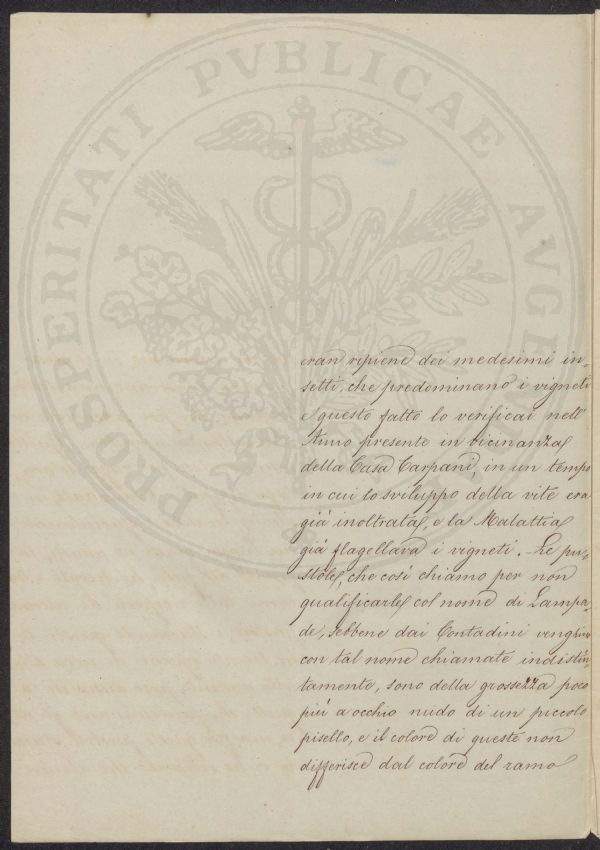 PROSPERITATI PVBLICAE AVGE
eran ripiene dei medesimi in-
setti, che predominano i vigneti
e questo fatto lo verificai nell'
Anno presente in vicinanza
della Casa Carpani, in un tempo
in cui lo sviluppo della vite era
già inoltrata, e la Malattia
già flagellava i vigneti. Le pu-
stole, che così chiamo per non
qualificarle col nome di Lampa-
de, sebbene dai Contadini vengano
con tal nome chiamate indistin-
tamente, sono della grossezza poco
più a occhio nudo di un piccolo
pisello, e il colore di queste non
differisce dal colore del ramo